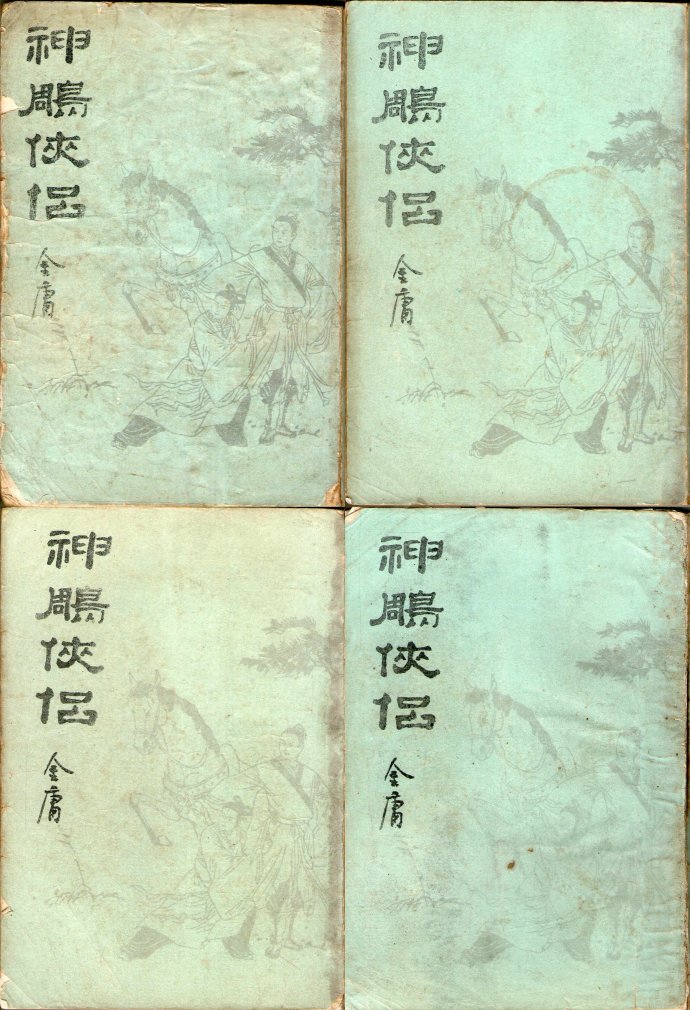 神鵰俠侶
金庸
神鵰俠侶
金庸
神鵰俠侶
金庸
神鵰俠侶
金庸